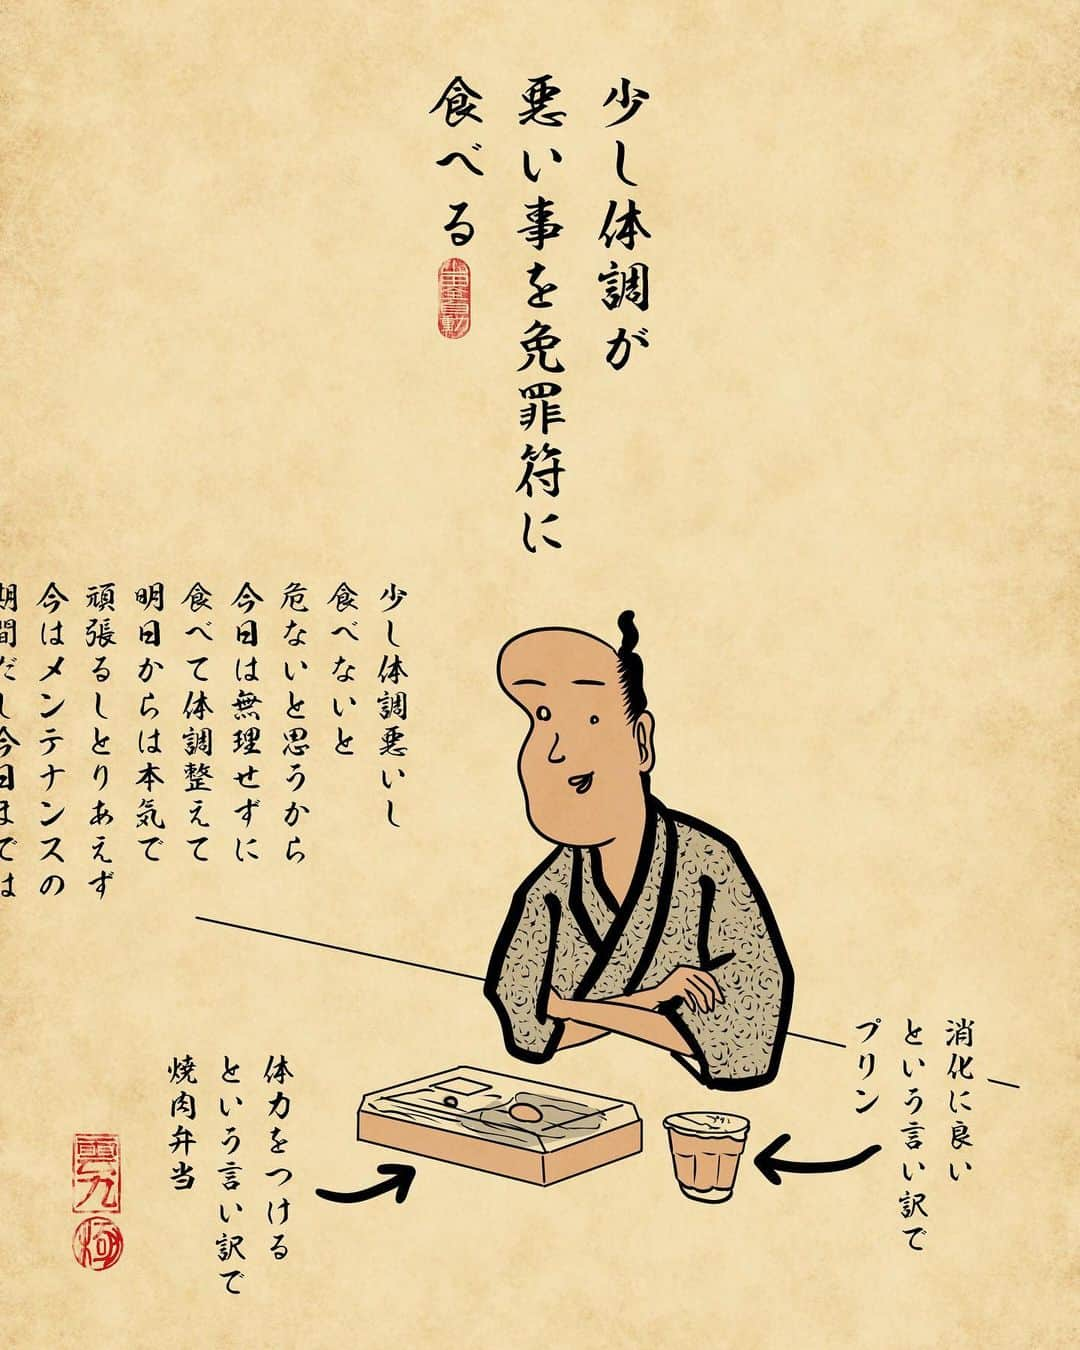 少し体調が
悪い事を免罪符に
食べる
少し体調悪いし
食べないと
危ないと思うから
今日は無理せずに
食べて体調整えて
明日からは本気で
頑張るしとりあえず
今はメンテナンスの
期間だし今日までは
消化に良い
という言い訳で
プリン
体力をつける
という言い訳で
焼肉弁当